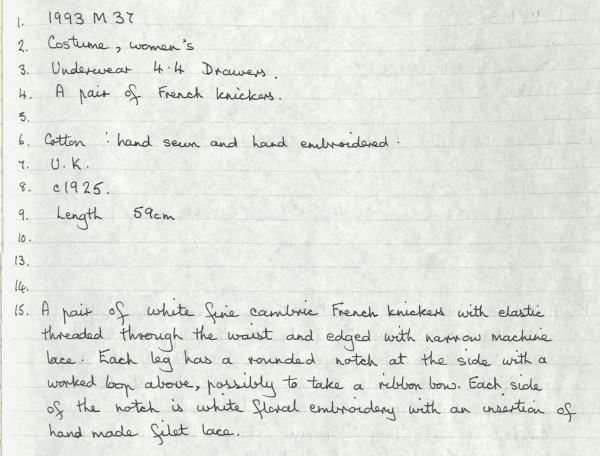 1. 1993 M 37
2. Costume, women's
3. Underwear 4.4 Drawers.
4. A pair of French knickers.
5.
6. Cotton : hand sewn and hand embroidered.
7. U.K.
8. c1925.
9. Length 59cm
10.
13.
14.
15. A pair of white fine cambric French knickers with elastic
threaded through the waist and edged with narrow machine
lace. Each leg has a rounded notch at the side with a
worked loop above, possibly to take a ribbon bow. Each side
of the notch is white floral embroidery with an insertion of
hand made filet lace.